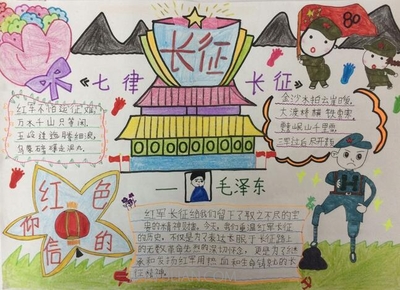 长征
80
《七律 长征》
红军不怕远征难,
万水千山只等闲,
五岭逶迤腾细浪,
乌蒙磅礴走泥丸。
金沙水拍云崖暖,
大渡桥横铁索寒,
更喜岷山千里雪,
三军过后尽开颜。
—毛泽东
红色的信仰
红军长征给我们留下了取之不尽的
的精神 今天,我们重温红军长征
的历史,不仅是为了表达长眠于长征路上
的无数革命先烈的深切怀念,更是为了继
承和发扬红军用热血和生命铸就的长
征精神。